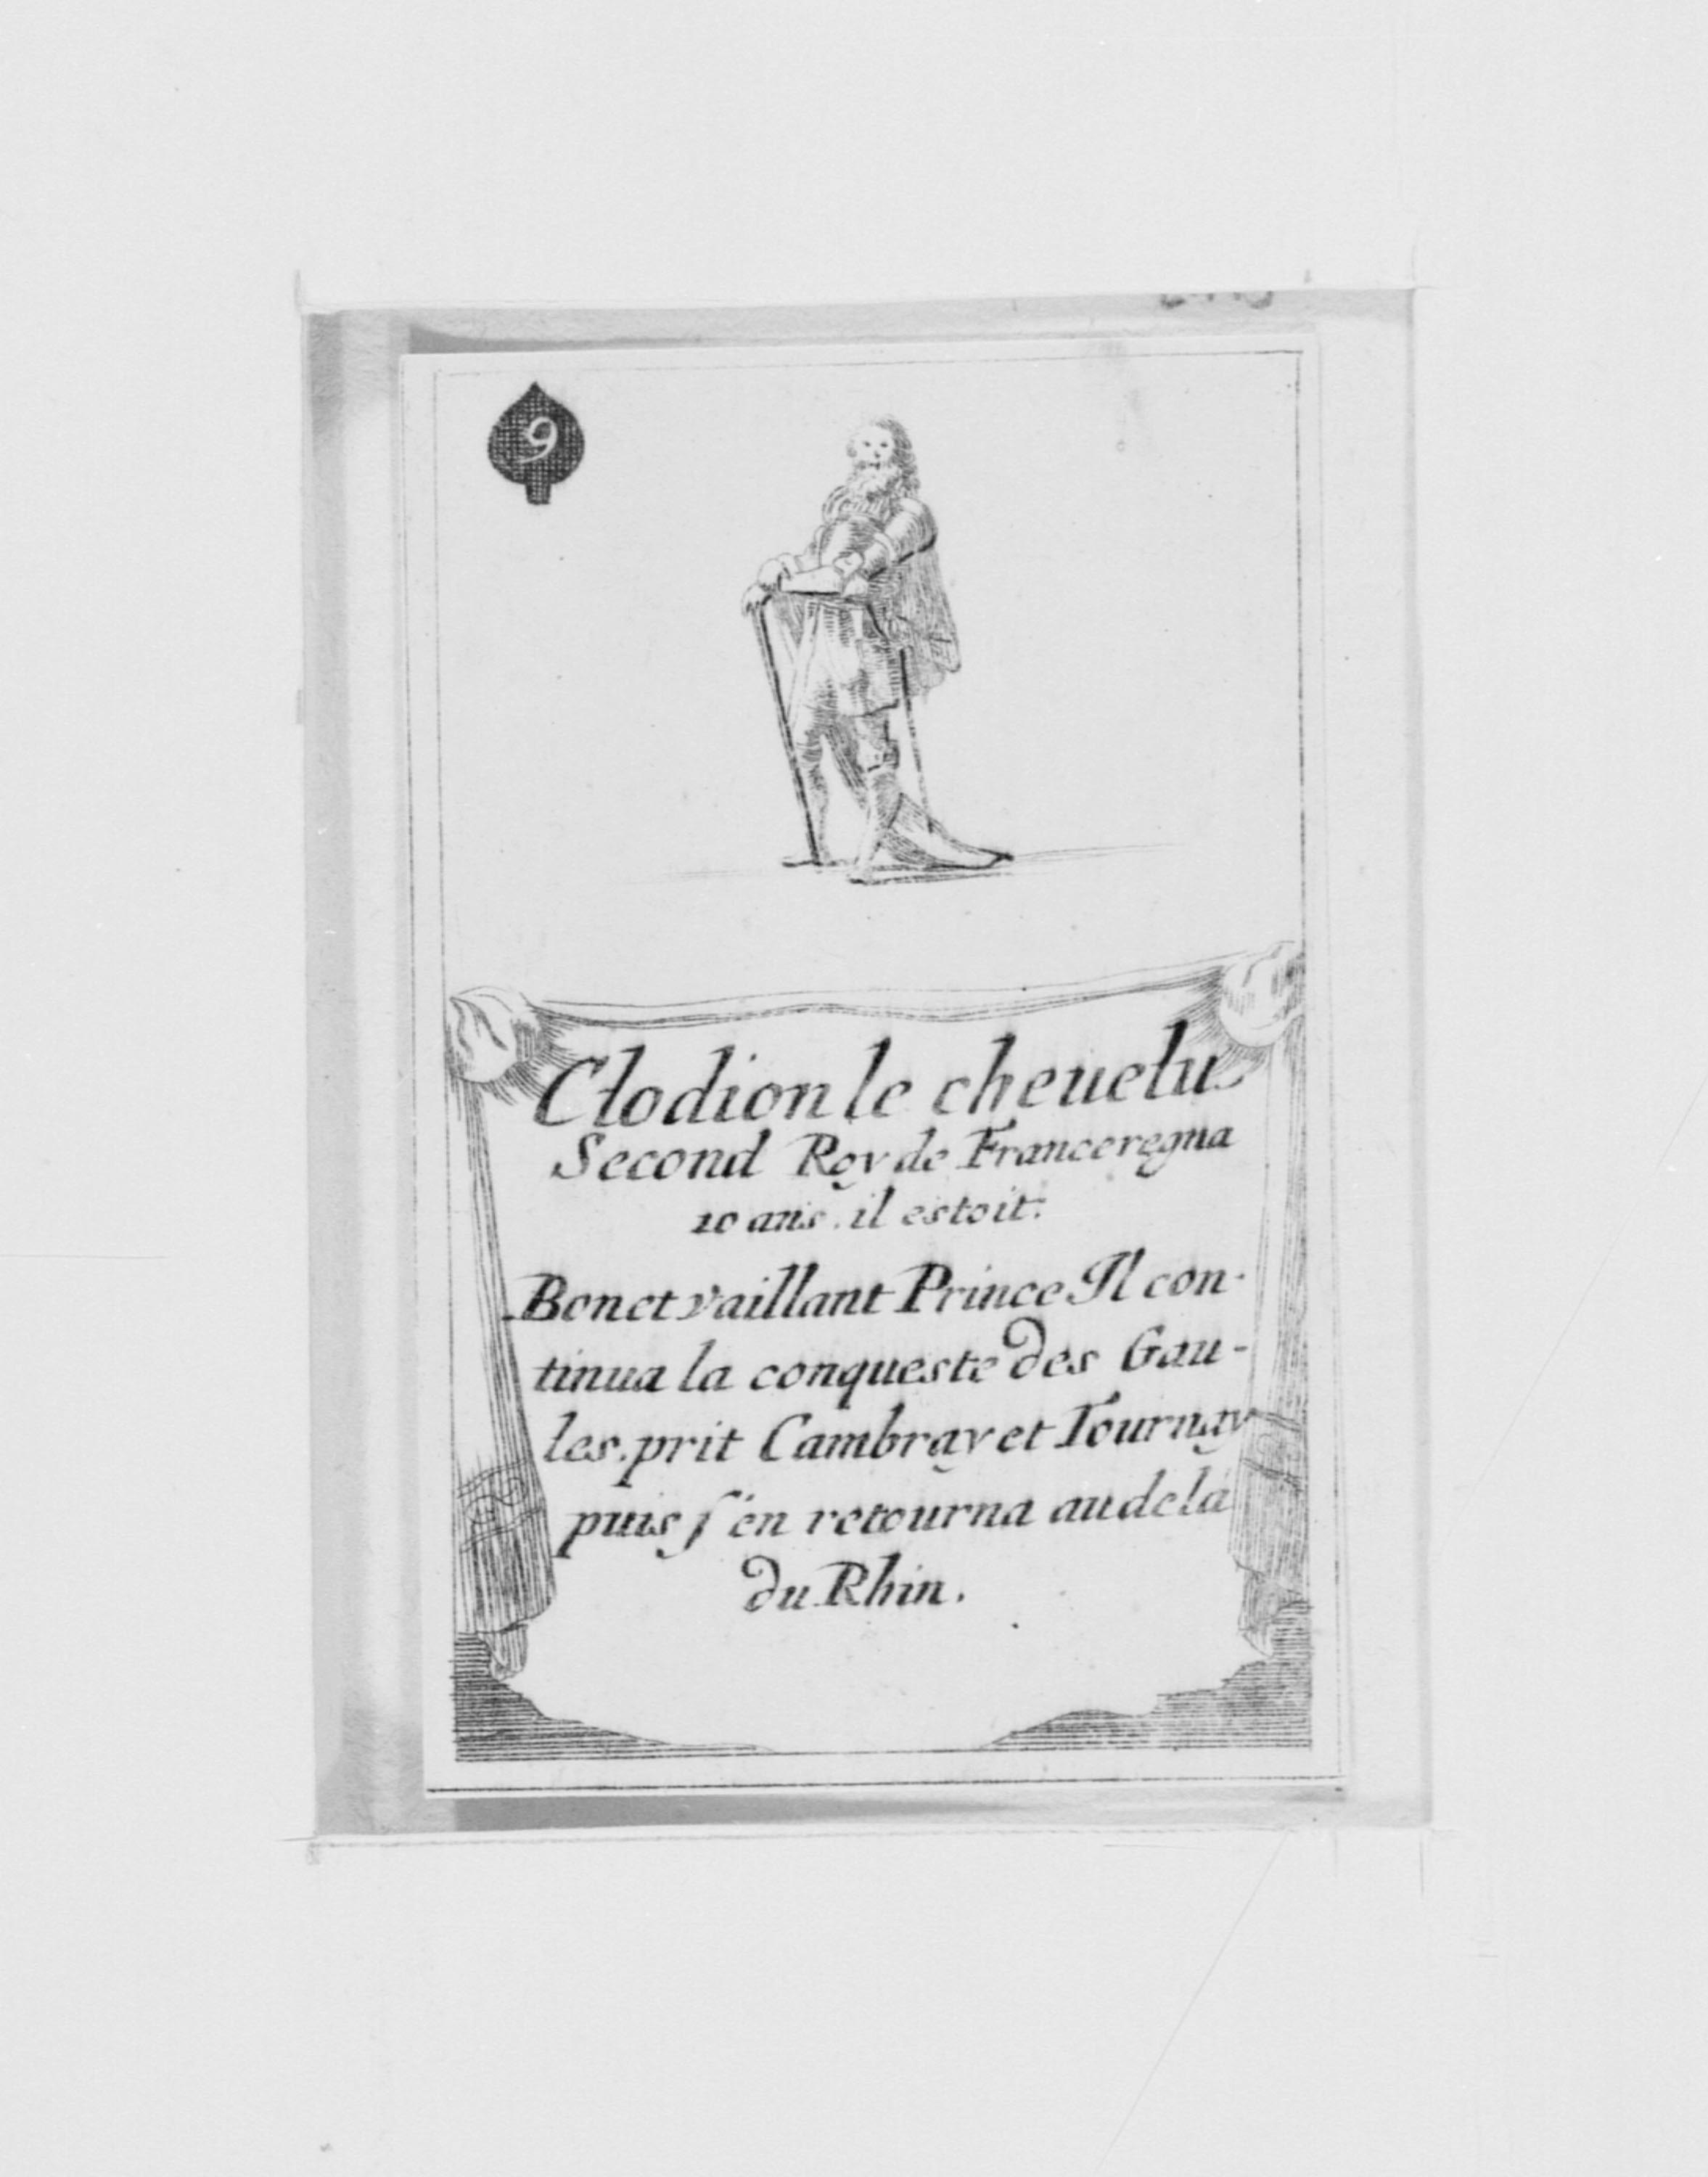 9
Clodion le cheuelu
Second Roy de France regna
10 ans. il estoit.
Bon et vaillant Prince Il con-
tinua la conqueste des Gau-
les. prit Cambray et Tournay
puis ſ'en retourna au dela
du Rhin.